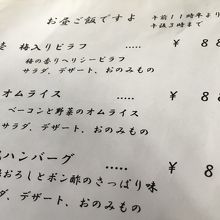 お昼ご飯ですよ
午前11時半より
午後3時まで
壱 梅入りピラフ ..... ¥ 8
梅の香りヘリシーピラフ
サラダ、デザート、おのみもの
オムライス ..... ¥ 8
ベーコンと野菜のオムライス
サラダ、デザート、おのみもの
ハンバーグ ..... ¥ 8
おろしとポン酢のさっぱり味
ラダ、デザート、おのみもの